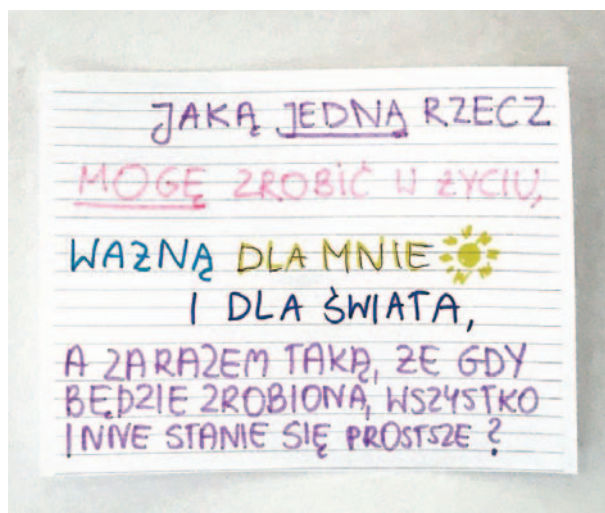 JAKĄ JEDNĄ RZECZ
MOGĘ ZROBIĆ W ŻYCIU,
WAŻNĄ DLA MNIE
I DLA ŚWIATA,
A ZARAZEM TAKĄ, ŻE GDY
BĘDZIE ZROBIONA, WSZYSTKO
INNE STANIE SIĘ PROSTSZE?